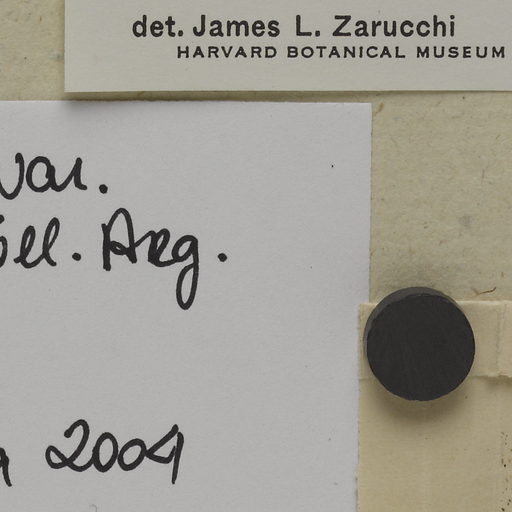 det. James L. Zarucchi
HARVARD BOTANICAL MUSEUM
var.
öll. Arg.
2004